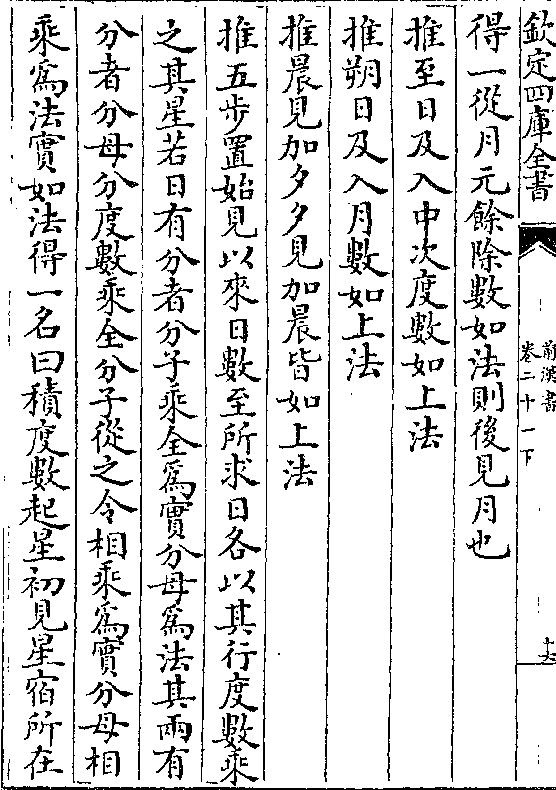 欽定四庫全書
前漢書
卷二十一下
十六
得一從月元餘除數如法則後見月也
推至日及入中次度數如上法
推朔日及入月數如上法
推晨見加夕夕見加晨皆如上法
推五步置始見以來日數至所求日各以其行度數乘
之其星若日有分者分子乘全為實分母為法其兩有
分者分母分度數乘全分子從之令相乘為實分母相
乘為法實如法得一名曰積度數起星初見星宿所在